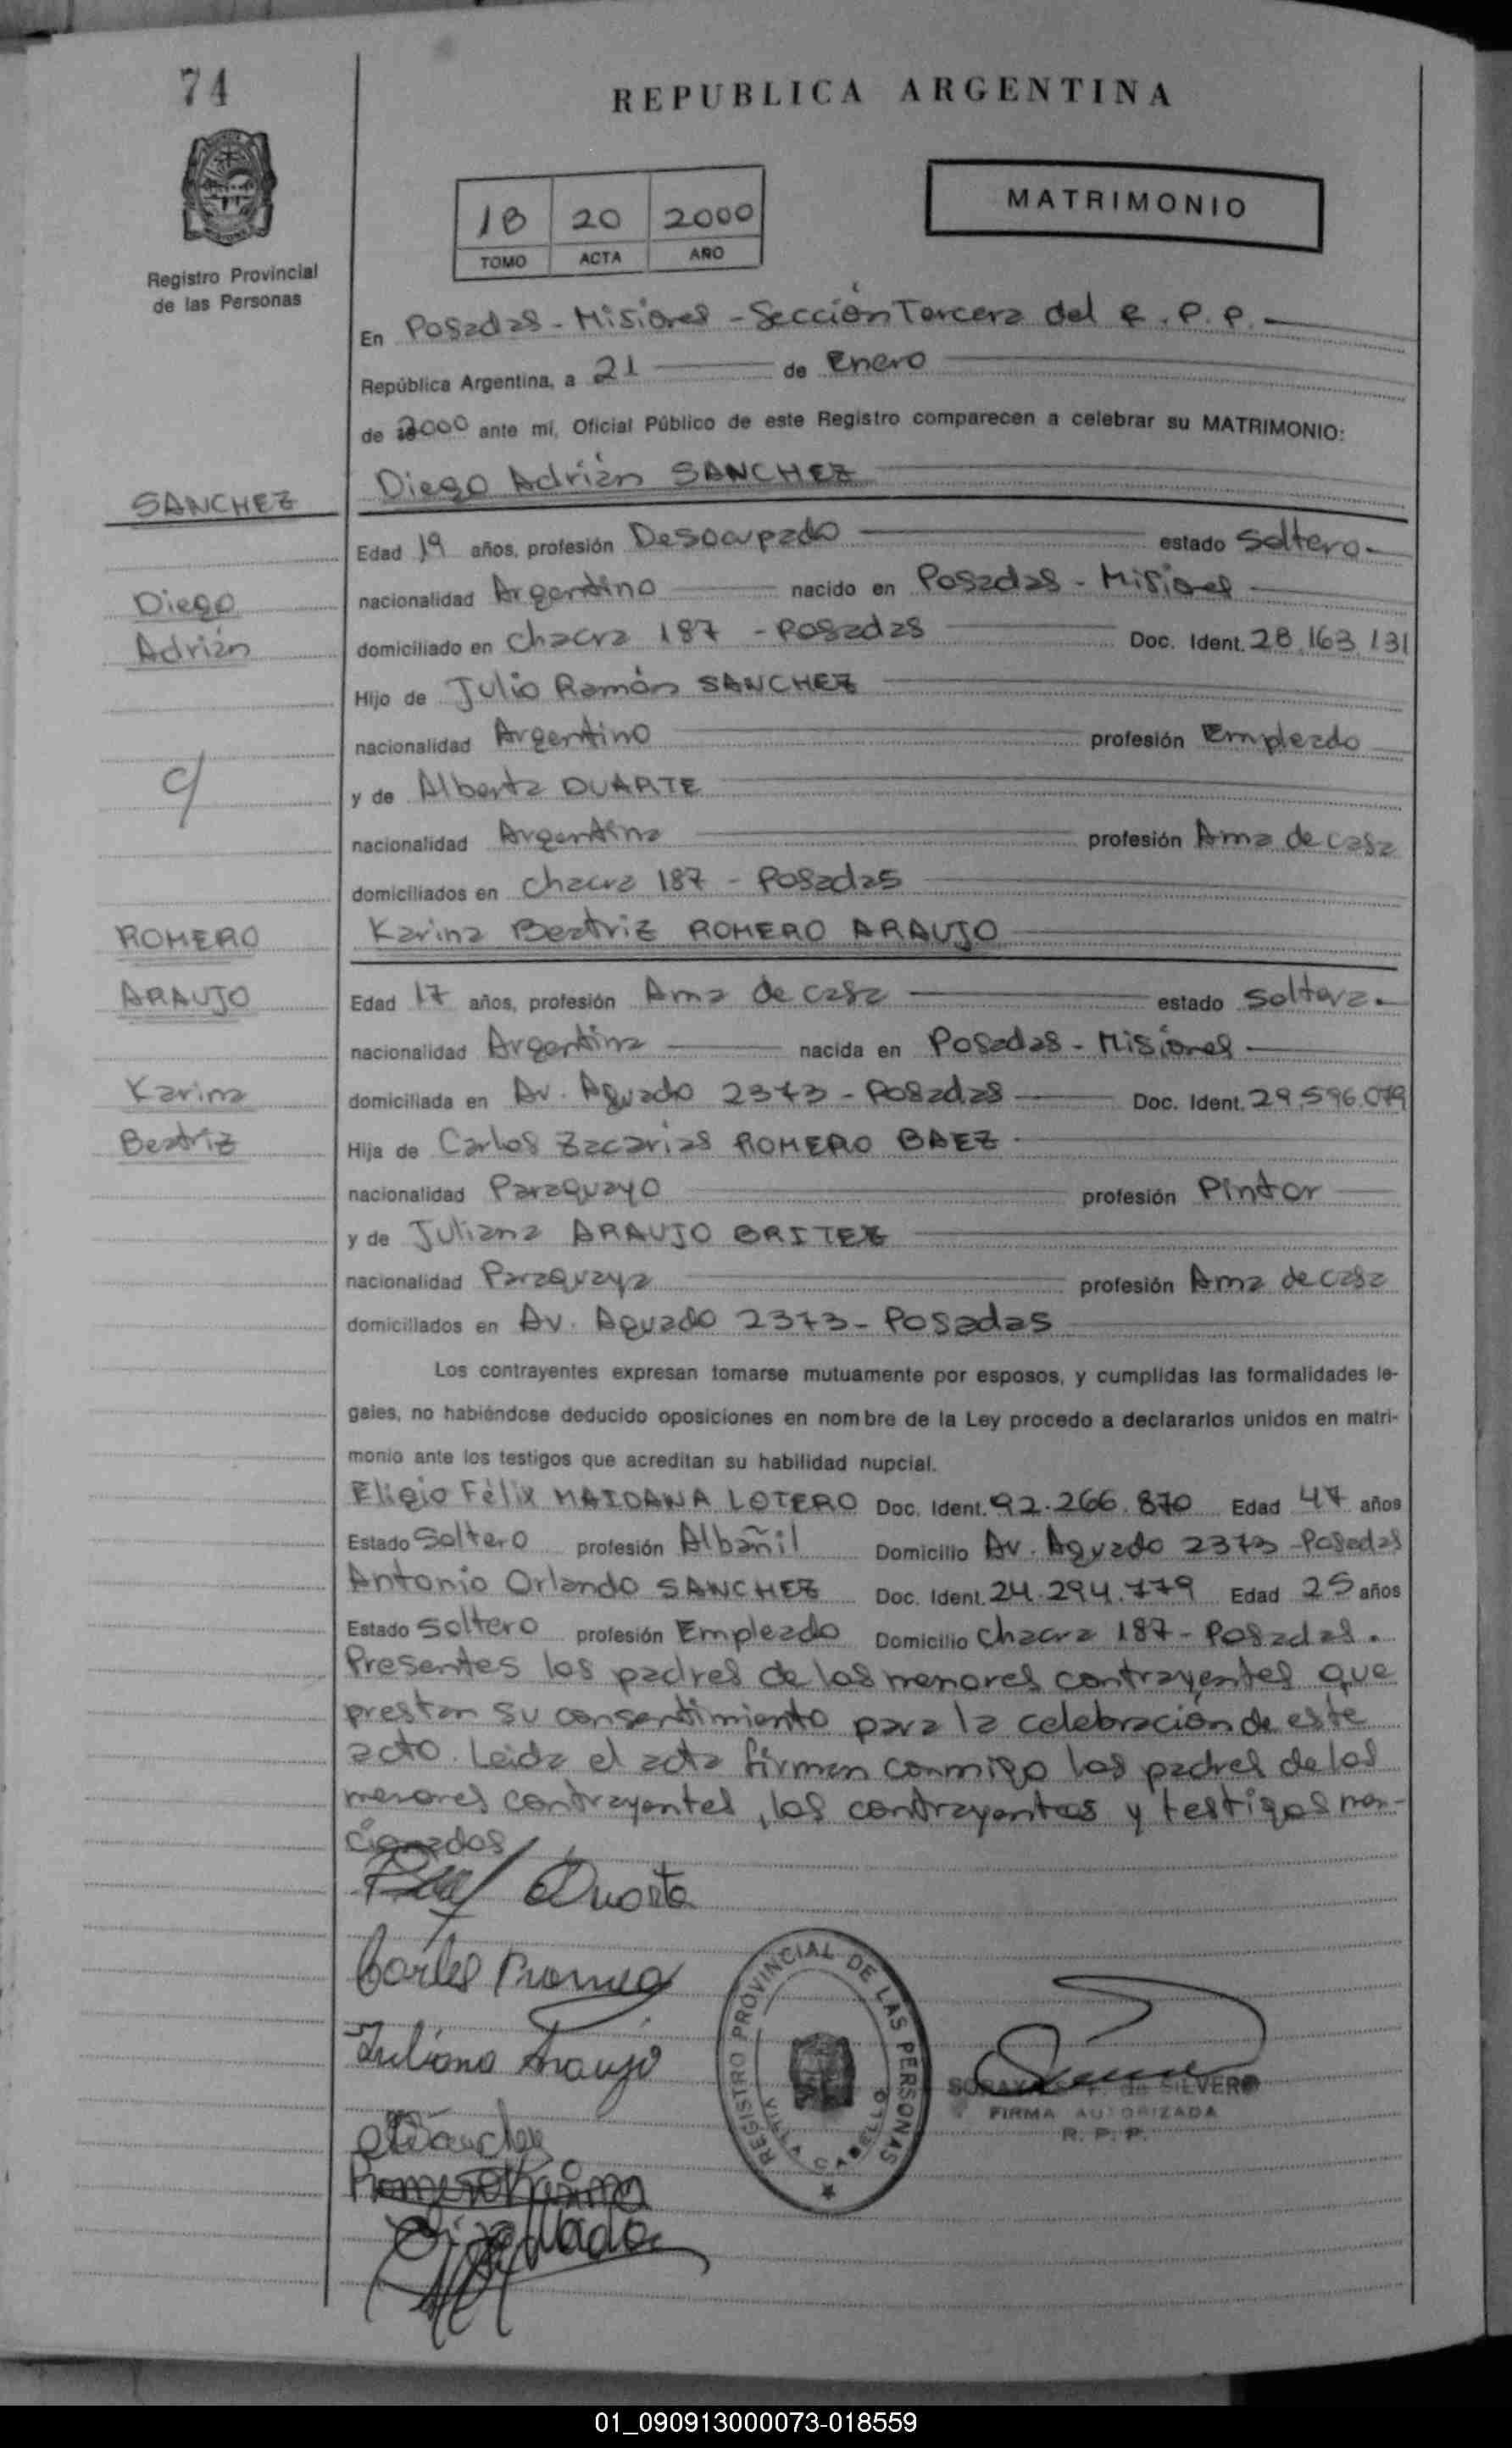 74
REPUBLICA ARGENTINA
Registro Provincial
de las Personas
1B 20 2000
TOMO ACTA AÑO
MATRIMONIO
En Posadas - Misiones - Sección Tercera del R. P. P.
República Argentina, a 21 de Enero
de 2000 ante mí, Oficial Público de este Registro comparecen a celebrar su MATRIMONIO:
SANCHEZ
Diego Adrián SANCHEZ
Edad 19 años, profesión Desocupado estado soltero
Diego
nacionalidad Argentino nacido en Posadas - Misiones
Adrián
domiciliado en chacra 187 - Posadas Doc. Ident. 28.163.131
Hijo de Julio Ramón SANCHEZ
nacionalidad Argentino profesión Empleado
c/
y de Alberta DUARTE
nacionalidad Argentina profesión Ama de casa
domiciliados en chacra 187 - Posadas
ROMERO
Karina Beatriz ROMERO ARAUJO
ARAUJO
Edad 17 años, profesión Ama de casa estado soltera.
nacionalidad Argentina nacida en Posadas - Misiones
Karina
domiciliada en Av. Aguado 2373 - Posadas Doc. Ident. 29.596.079
Beatriz
Hija de Carlos Zacarias ROMERO BAEZ
nacionalidad Paraguayo profesión Pintor
y de Juliana ARAUJO BRITEZ
nacionalidad Paraguaya profesión Ama de casa
domiciliados en Av. Aguado 2373 - Posadas
Los contrayentes expresan tomarse mutuamente por esposos, y cumplidas las formalidades le-
gales, no habiéndose deducido oposiciones en nombre de la Ley procedo a declararlos unidos en matri-
monio ante los testigos que acreditan su habilidad nupcial.
Eligio Félix MAIDANA LOTERO Doc. Ident. 92.266.870 Edad 47 años
Estado Soltero profesión Albañil Domicilio Av. Aguado 2373 - Posadas
Antonio Orlando SANCHEZ Doc. Ident. 24.294.779 Edad 25 años
Estado soltero profesión Empleado Domicilio chacra 187 - Posadas.
Presentes los padres de los menores contrayentes que
prestan su consentimiento para la celebración de este
acto. Leida el acta firman conmigo los padres de los
menores contrayentes, los contrayentes y testigos men-
cionados
Duarte
Carlos Romero
Juliana Araujo
Sanchez
Romero Karina
REGISTRO PROVINCIAL DE LAS PERSONAS
VILLA CABELLO
de SILVERO
FIRMA AUTORIZADA
R. P. P.
01_090913000073-018559